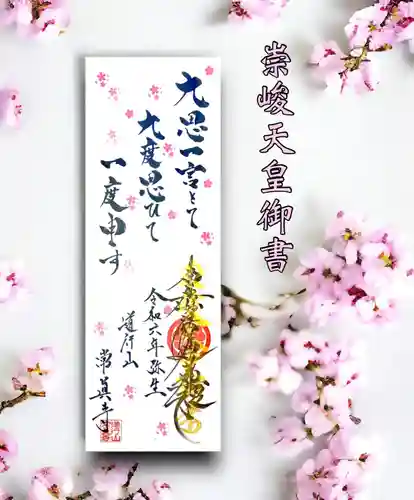 崇峻天皇御書
九思一言とて
九度思ひて
一度申す
令和六年弥生
道行山
常真寺